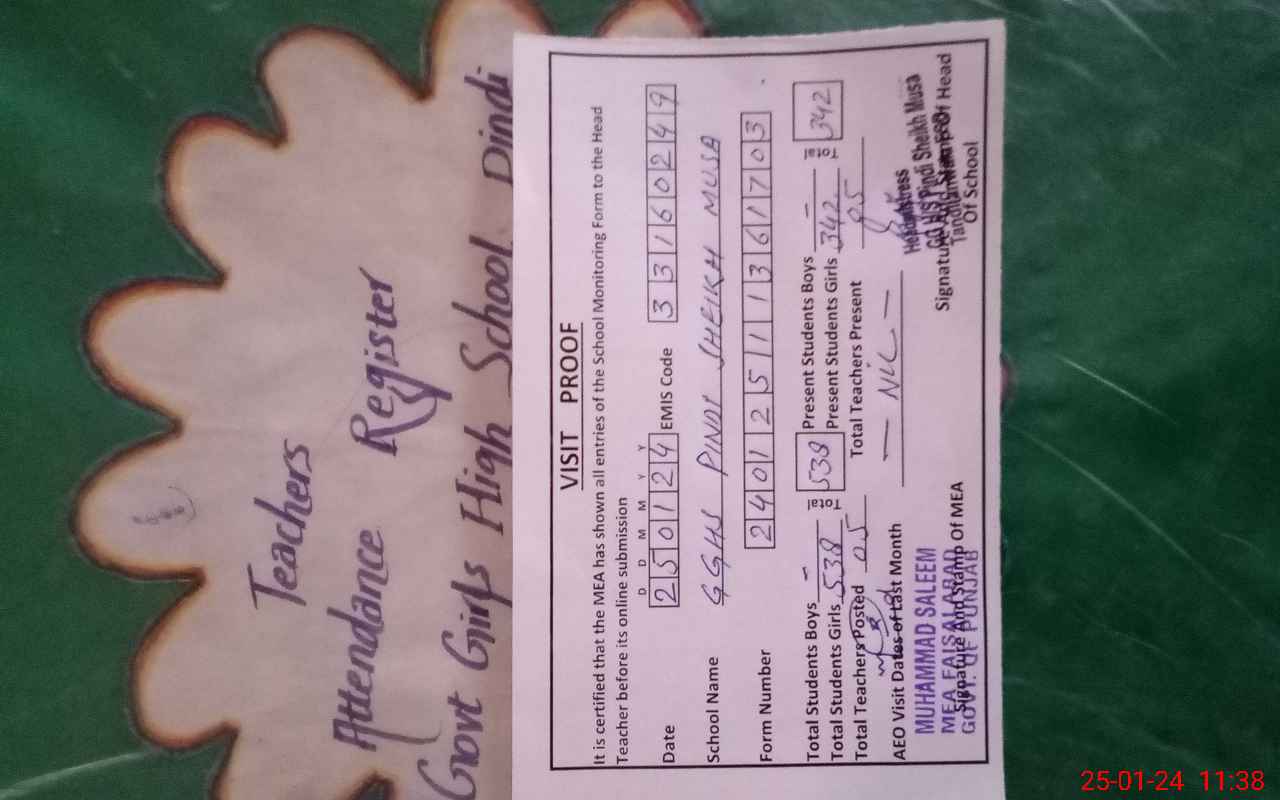 Teachers
Attendance Register
Govt Girls High School Pindi
VISIT PROOF
It is certified that the MEA has shown all entries of the School Monitoring Form to the Head
Teacher before its online submission
D D M M Y Y
Date 250124 EMIS Code 33160249
School Name GGHS PINDI SHEIKH MUSA
Form Number 24012511361703
Total Students Boys - Total 538 Present Students Boys - Total 342
Total Students Girls 538 Present Students Girls 342
Total Teachers Posted 05 Total Teachers Present 05
AEO Visit Dates of Last Month - NIL -
MUHAMMAD SALEEM
MEA FAISALABAD
GOVT. OF PUNJAB
Signature And Stamp Of MEA
Headmistress
GGHS Pindi Sheikh Musa
Signature And Stamp Of Head
Of School
25-01-24 11:38